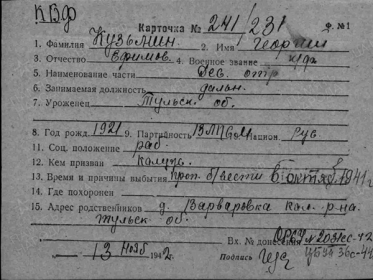 КВФ
Карточка № 241/231 Ф. №1
1. Фамилия Кузьмин 2. Имя Георгий
3. Отчество Ефимов. 4. Военное звание к/ф
5. Наименование части Дес. отр
6. Занимаемая должность дальн.
7. Уроженец Тульск. об.
8. Год рожд. 1921 9. Партийность ВЛКСМ 10. Национ. Рус
11. Соц. положение раб.
12. Кем призван
13. Время и причины выбытия проп. б/вести 6 октяб 1941 г
14. Где похоронен
15. Адрес родственников д. Варваровка р-на
Тульск об.
13 нояб 1942 г. Вх. № донесения
Подпись